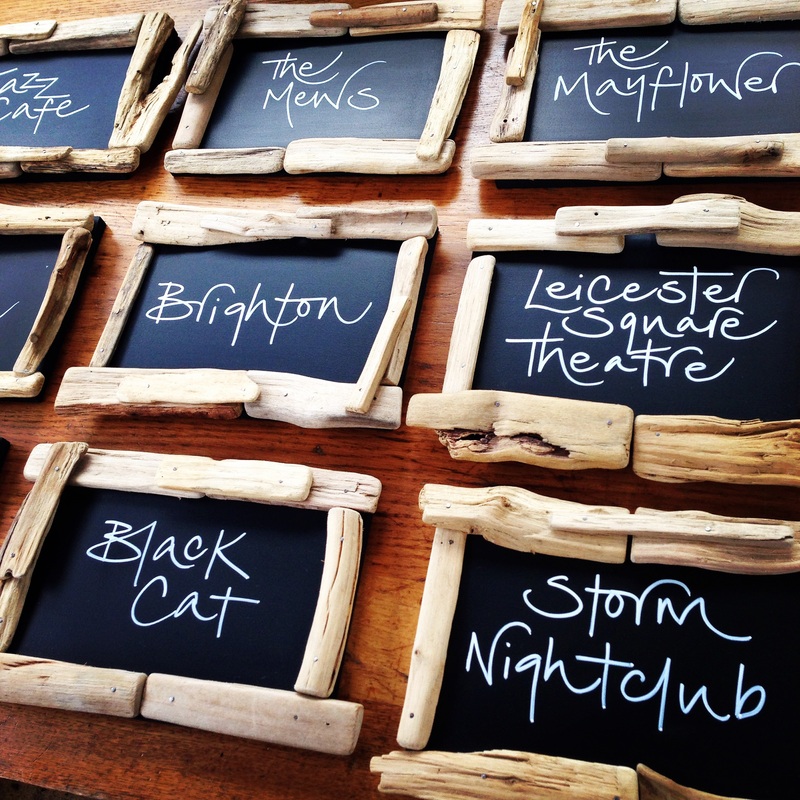 Cafe
The
Mews
The
Mayflower
Brighton
Leicester
Square
Theatre
Black
Cat
Storm
Nightclub